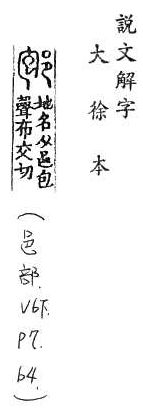 說文解字
大徐本
地名从邑包
聲布交切
(邑部. V6下. P7. 64.)